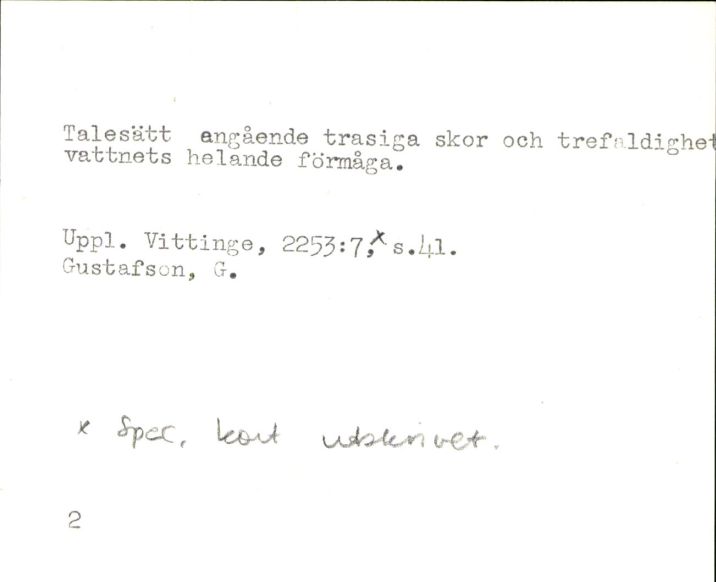 Talesätt angående trasiga skor och trefaldighet
vattnets helande förmåga.
Uppl. Vittinge, 2253:7,x s.41.
Gustafson, G.
x Spec. kort utskrivet.
2